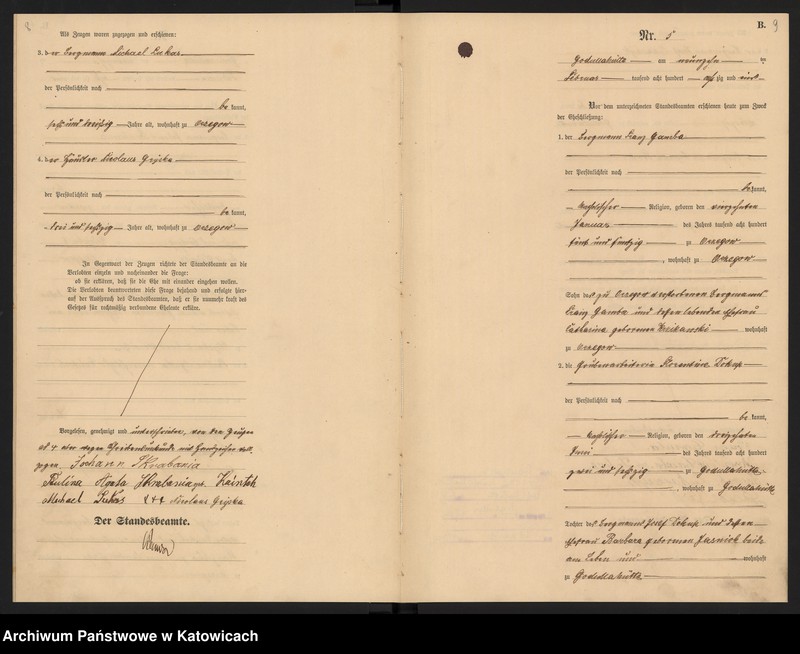 Als Zeugen waren zugezogen und erschienen:
3. der Bergmann Michael Lukas
der Persönlichkeit nach
be kannt,
sechs und dreißig Jahre alt, wohnhaft zu Orzegow
4. der Häusler Nicolaus Gajska
der Persönlichkeit nach
be kannt,
drei und sechszig Jahre alt, wohnhaft zu Orzegow
In Gegenwart der Zeugen richtete der Standesbeamte an die
Verlobten einzeln und nacheinander die Frage:
ob sie erklären, daß sie die Ehe mit einander eingehen wollen.
Die Verlobten beantworteten diese Frage bejahend und erfolgte hier-
auf der Ausspruch des Standesbeamten, daß er sie nunmehr kraft des
Gesetzes für rechtmäßig verbundene Eheleute erkläre.
Vorgelesen, genehmigt und unterschrieben, von dem Zeugen
ad 4 aber wegen Schreibensunkunde mit Handzeichen
zogen. Johann Skrabania
Paulina Agata Skrabania geb. Kaintoch
Michael Lukas +++ Nicolaus Gajska
Der Standesbeamte.
B.
9
Nr. 5
Godullahütte am neunzehn ten
Februar tausend acht hundert achtzig und
Vor dem unterzeichneten Standesbeamten erschienen heute zum Zweck
der Eheschließung:
1. der Bergmann Franz Gamba
der Persönlichkeit nach
be kannt,
katholischer Religion, geboren den vierzehnten
Januar des Jahres tausend acht hundert
fünf und fünfzig zu Orzegow
, wohnhaft zu Orzegow
Sohn des zu Orzegow verstorbenen Bergmanns
Franz Gamba und dessen lebenden Ehefrau
Catharina geborenen wohnhaft
zu Orzegow
2. die Grubenarbeiterin Florentine Tokus
der Persönlichkeit nach
be kannt,
katholischer Religion, geboren den dreizehnten
Juni des Jahres tausend acht hundert
zwei und sechszig zu Godullahütte
, wohnhaft zu Godullahütte
Tochter des Bergmanns Josef Tokus und dessen
Ehefrau Barbara geborenen Jasniok beide
am Leben und wohnhaft
zu Godullahütte
Archiwum Państwowe w Katowicach